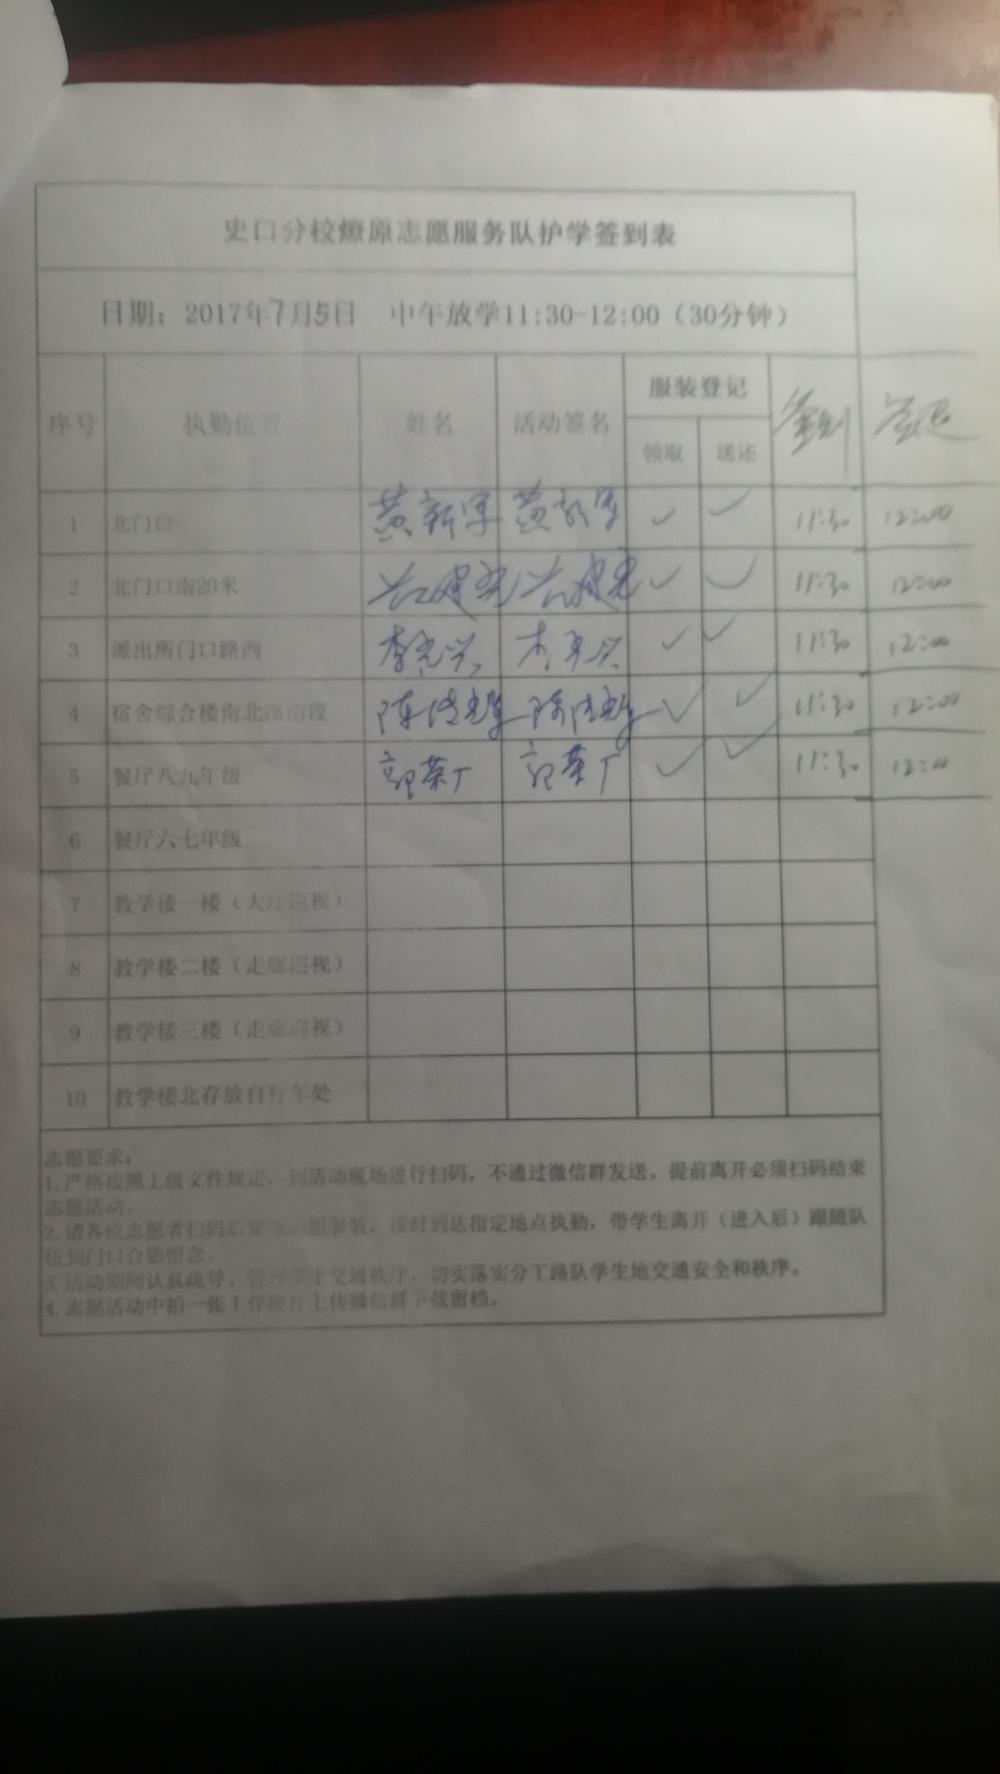 史口分校燎原志愿服务队护学签到表
日期：2017年7月5日 中午放学11:30-12:00（30分钟）
序号 执勤位置 姓名 活动签名 服装登记 签到 签退
领取 送还
1 北门口 黄新军 黄新军 ✓ ✓ 11:30 12:00
2 北门口南20米 ✓ ✓ 11:30 12:00
3 派出所门口路西 李光兴 ✓ ✓ 11:30 12:00
4 宿舍综合楼南北路南段 ✓ ✓ 11:30 12:00
5 餐厅八九年级 ✓ ✓ 11:30 12:00
6 餐厅六七年级
7 教学楼一楼（大厅巡视）
8 教学楼二楼（走廊巡视）
9 教学楼三楼（走廊巡视）
10 教学楼北存放自行车处
志愿要求：
1.严格按照上级文件规定，到活动现场进行扫码，不通过微信群发送。提前离开必须扫码结束
志愿活动。
2.请各位志愿者扫码后穿戴志愿服装，按时到达指定地点执勤，带学生离开（进入后）跟随队
伍到门口合影留念。
3.活动期间认真疏导、管理学生交通秩序，切实落实分工路队学生地交通安全和秩序。
4.志愿活动中拍一张工作照片上传微信群下载留档。